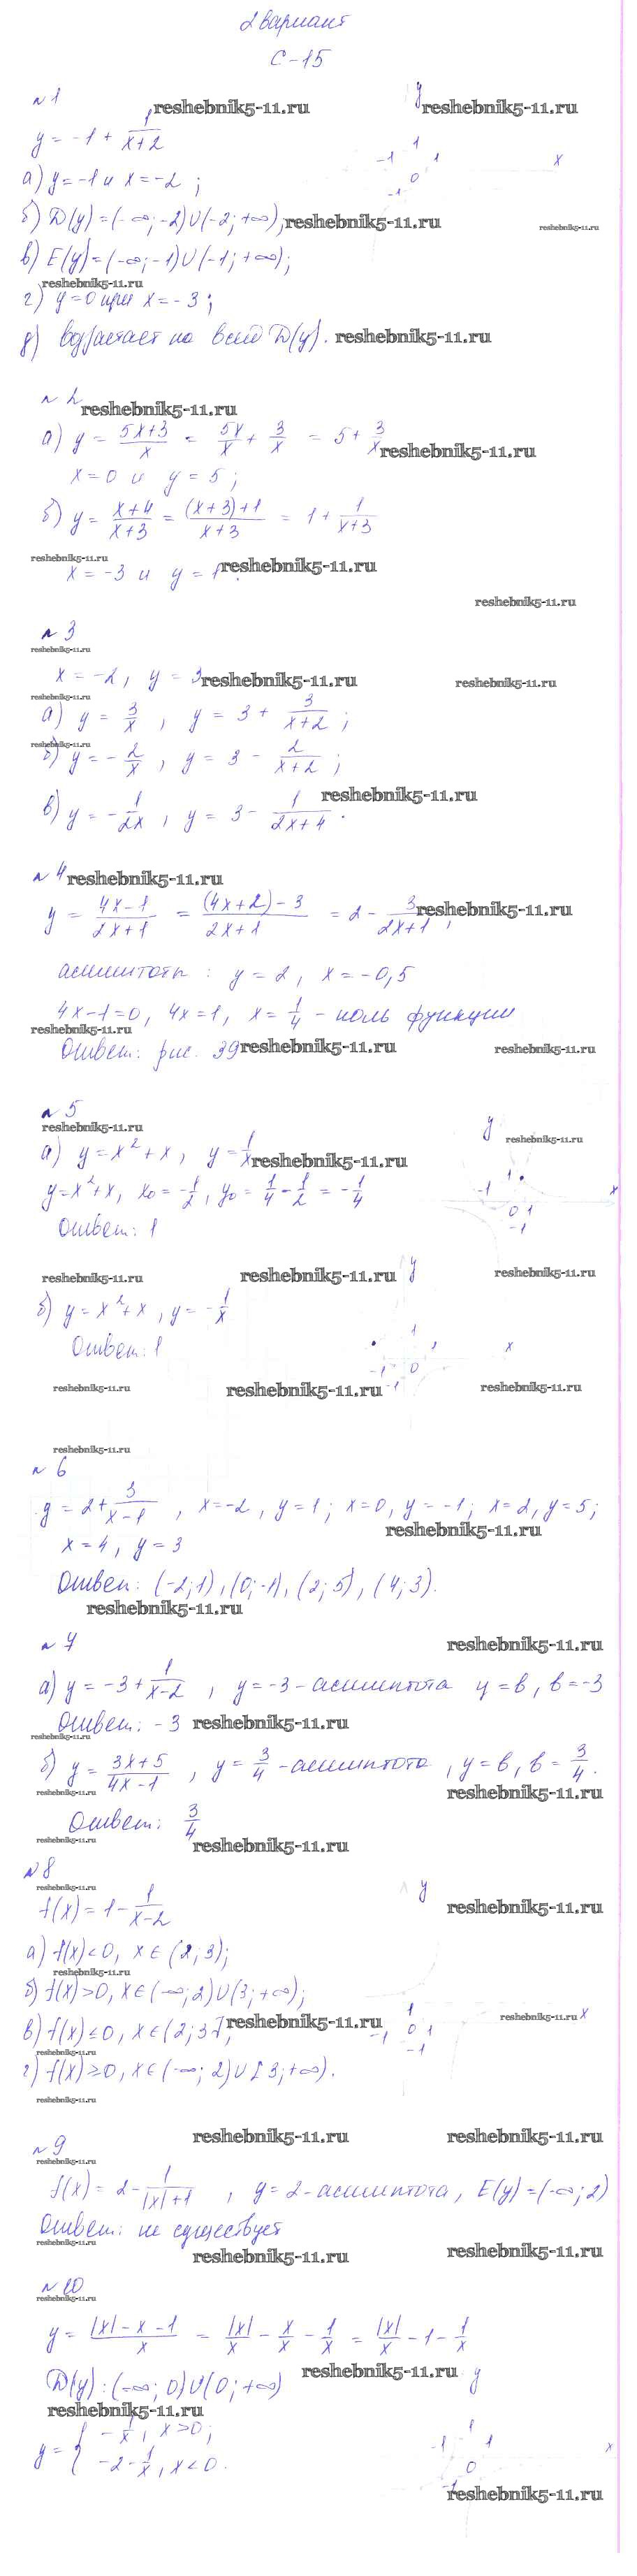 2 вариант
С-15
№1
reshebnik5-11.ru
y
reshebnik5-11.ru
y = -1 + 1/(x+2)
1
-1 1 x
0
-1
а) y = -1 и x = -2 ;
б) D(y) = (-∞; -2)∪(-2; +∞); reshebnik5-11.ru
reshebnik5-11.ru
в) E(y) = (-∞; -1)∪(-1; +∞);
reshebnik5-11.ru
г) y=0 при x = -3 ;
д) возрастает на всей D(y). reshebnik5-11.ru
№2
reshebnik5-11.ru
а) y = (5x+3)/x = 5x/x + 3/x = 5 + 3/x
reshebnik5-11.ru
x = 0 и y = 5 ;
б) y = (x+4)/(x+3) = ((x+3)+1)/(x+3) = 1 + 1/(x+3)
reshebnik5-11.ru
x = -3 и y = 1 . reshebnik5-11.ru
reshebnik5-11.ru
№3
reshebnik5-11.ru
x = -2, y = 3 reshebnik5-11.ru
reshebnik5-11.ru
reshebnik5-11.ru
а) y = 3/x , y = 3 + 3/(x+2) ;
reshebnik5-11.ru
б) y = -2/x , y = 3 - 2/(x+2) ;
reshebnik5-11.ru
в) y = -1/2x , y = 3 - 1/(2x+4) .
№4 reshebnik5-11.ru
y = (4x-1)/(2x+1) = ((4x+2)-3)/(2x+1) = 2 - 3/(2x+1) ,
reshebnik5-11.ru
асимптоты : y = 2, x = -0,5
4x-1=0, 4x=1, x = 1/4 - ноль функции
reshebnik5-11.ru
Ответ: рис. 39 reshebnik5-11.ru
reshebnik5-11.ru
№5
reshebnik5-11.ru
y
reshebnik5-11.ru
а) y = x²+x, y = 1/x
reshebnik5-11.ru
1
-1 x
0 1
-1
y=x²+x, x₀ = -1/2, y₀ = 1/4 - 1/2 = -1/4
Ответ: 1
reshebnik5-11.ru
reshebnik5-11.ru
y
reshebnik5-11.ru
б) y = x²+x, y = -1/x
1
1 x
-1 0
-1
Ответ: 1
reshebnik5-11.ru
reshebnik5-11.ru
reshebnik5-11.ru
reshebnik5-11.ru
№6
y = 2 + 3/(x-1) , x=-2, y=1; x=0, y=-1; x=2, y=5;
reshebnik5-11.ru
x = 4, y = 3
Ответ: (-2;1), (0;-1), (2;5), (4;3).
reshebnik5-11.ru
№7
reshebnik5-11.ru
а) y = -3 + 1/(x-2) , y=-3 - асимптота y = b, b = -3
Ответ: -3 reshebnik5-11.ru
reshebnik5-11.ru
б) y = (3x+5)/(4x-1) , y = 3/4 - асимптота, y = b, b = 3/4.
reshebnik5-11.ru
reshebnik5-11.ru
Ответ: 3/4
reshebnik5-11.ru
reshebnik5-11.ru
№8
reshebnik5-11.ru
y
reshebnik5-11.ru
f(x) = 1 - 1/(x-2)
а) f(x)<0, x∈(2;3);
reshebnik5-11.ru
б) f(x)>0, x∈(-∞;2)∪(3;+∞);
1
-1 0 1
-1
reshebnik5-11.ru x
в) f(x)≤0, x∈(2;3]; reshebnik5-11.ru
reshebnik5-11.ru
г) f(x)≥0, x∈(-∞;2)∪[3;+∞).
reshebnik5-11.ru
reshebnik5-11.ru
reshebnik5-11.ru
№9
reshebnik5-11.ru
f(x) = 2 - 1/(|x|+1) , y = 2 - асимптота, E(y) = (-∞;2)
Ответ: не существует
reshebnik5-11.ru
reshebnik5-11.ru
reshebnik5-11.ru
№10
reshebnik5-11.ru
y = (|x|-x-1)/x = |x|/x - x/x - 1/x = |x|/x - 1 - 1/x
reshebnik5-11.ru
D(y): (-∞; 0)∪(0; +∞)
y
reshebnik5-11.ru
y = { -1/x, x>0;
-2 - 1/x, x<0.
1
-1 1 x
0
-1
reshebnik5-11.ru